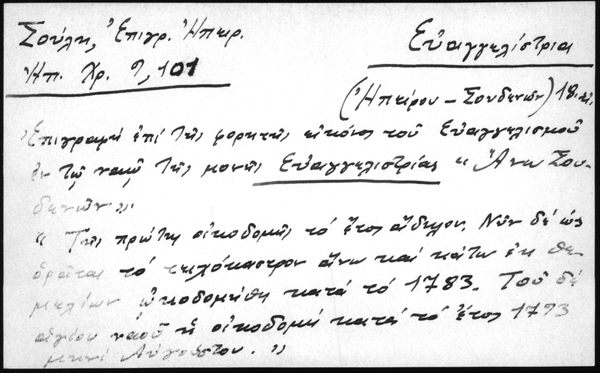 Σούλη, Ἐπιγρ. Ἠπειρ.
Ἠπ. Χρ. 9, 101
Εὐαγγελίστρια
(Ἠπείρου – Σουδενῶν) 18. αἰ.
Ἐπιγραφὴ ἐπὶ τῆς φορητῆς εἰκόνος τοῦ Εὐαγγελισμοῦ
ἐν τῷ ναῷ τῆς μονῆς Εὐαγγελιστρίας "Ἄνω Σου-
δενῶν"
" Τῆς πρώτης οἰκοδομῆς τὸ ἔτος ἄδηλον. Νῦν δὲ ὡς
ὁρᾶται τὸ τειχόκαστρον ἄνω καὶ κάτω ἐκ θε-
μελίων ᾠκοδομήθη κατὰ τὸ 1783. Τοῦ δὲ
ἁγίου ναοῦ ἡ οἰκοδομὴ κατὰ τὸ ἔτος 1793
μηνὶ Αὐγούστου. "